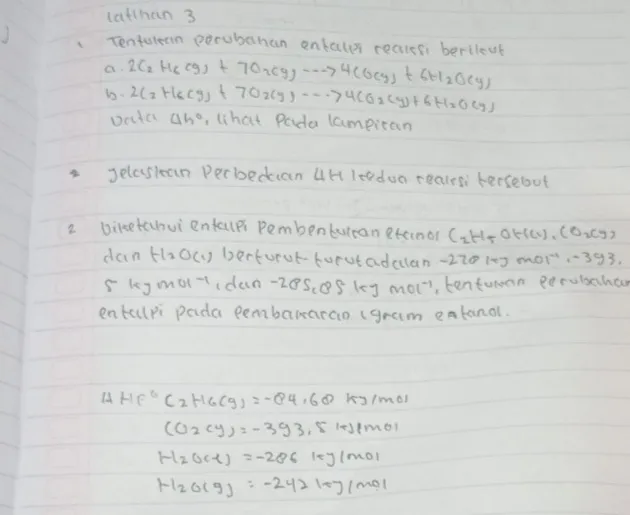 Latihan 3
1. Tentukan perubahan entalpi reaksi berikut
a. 2C2H6(g) + 7O2(g) ---> 4CO(g) + 6H2O(g)
b. 2C2H6(g) + 7O2(g) ---> 4CO2(g) + 6H2O(g)
Data ΔH°, lihat pada lampiran
Jelaskan Perbedaan ΔH kedua reaksi tersebut
2 Diketahui entalpi Pembentukan etanol C2H5OH(l), CO2(g)
dan H2O(l) berturut-turut adalah -278 kj mol⁻¹, -393,
5 kj mol⁻¹, dan -285,85 kj mol⁻¹, tentukan perubahan
entalpi pada pembakaran 1 gram entanol.
ΔHf° C2H6(g) = -84,68 kj/mol
CO2(g) = -393,5 kj/mol
H2O(l) = -286 kj/mol
H2O(g) = -242 kj/mol